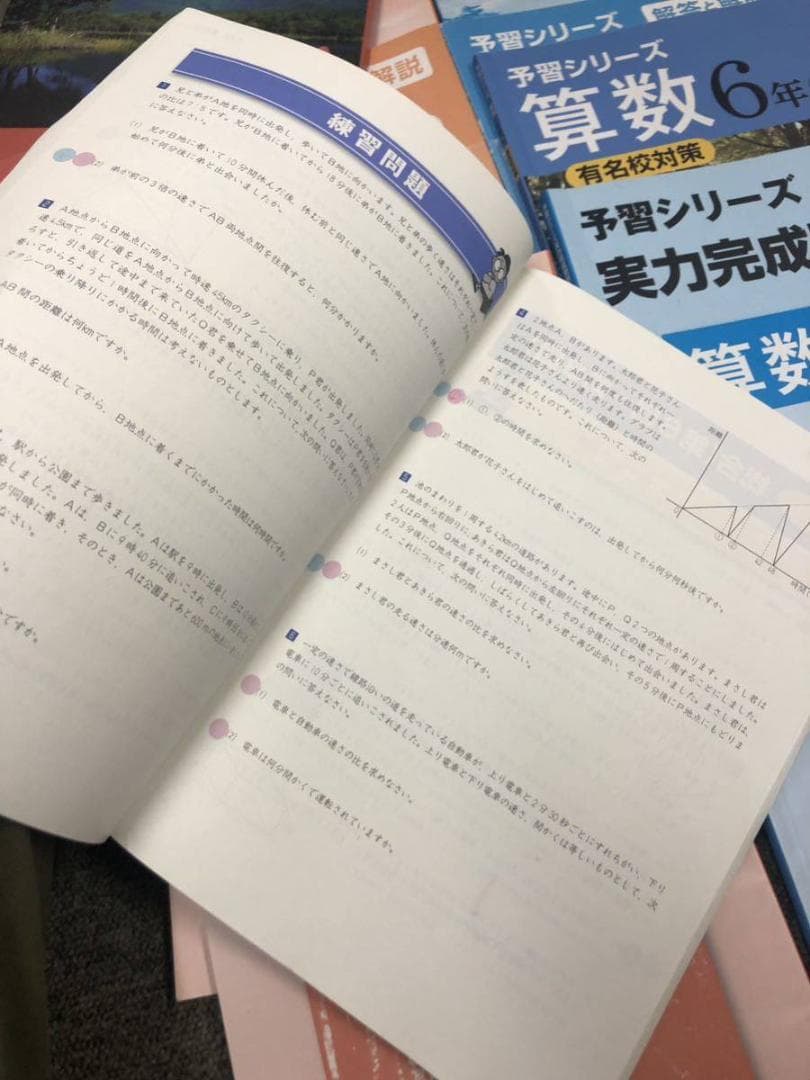 解説
予習シリーズ
解答と
予習シリーズ
算数6年
有名校対策
予習シリーズ
実力完成
算数
練習問題
1 兄と弟がA地を同時に出発し、歩いてB地に向かいます。兄と弟の歩く速さはそれぞれ
の比は7:5です。兄がB地に着いてから18分後に弟がB地に着きました。これについて
に答えなさい。
(1) 兄がB地に着いて10分間休んだ後、休む前と同じ速さでA地に向かいました。
始めて何分後に弟と出会いましたか。
(2) 弟が前の3倍の速さでAB両地点間を往復すると、何分かかりますか。
2 A地点からB地点に向かって時速45kmのタクシーに乗り、P君が出発しました。
速4.5kmで、同じ道をA地点からB地点に向けて歩いて出発しました。タクシーは
ろすと、引き返して途中まで来ていたQ君を乗せてB地点に向かいました。Q君は、
着いてからちょうど1時間後にB地点に着きました。これについて、次の問いに答え
タクシーの乗り降りにかかる時間は考えないものとします。
AB間の距離は何kmですか。
A地点を出発してから、B地点に着くまでにかかった時間は何時間ですか。
、駅から公園まで歩きました。Aは駅を9時に出発し、Bは
発しました。Aは、Bに9時40分に追いこされ、Cに
が同時に着き、そのとき、Aは公園まであと600mの地点
なさい。
ですか。
4 2地点A、Bがあります。太郎君と花子さん
はAを同時に出発し、Bに向かってそれぞれ一
定の速さで走り、AB間を何度も往復します。
太郎君は花子さんより速く走ります。グラフは
太郎君と花子さんのへだたり(距離)と時間の
ようすを表したものです。これについて、次の
問いに答えなさい。
距離
0
①
②
時間
(1) ①、②の時間を求めなさい。
(2) 太郎君が花子さんをはじめて追いこすのは、出発してから何分何秒後ですか。
5 池のまわりを1周する4.2kmの道路があります。途中にP、Q2つの地点があります。まさし君は
P地点から右回りに、あきら君はQ地点から左回りにそれぞれ一定の速さで1周することにしました。
2人はP地点、Q地点をそれぞれ同時に出発し、その6分後にはじめて出会いました。まさし君は、
その3分後にQ地点を通過し、しばらくしてあきら君と再び出会い、その5分後にP地点にもどりま
した。これについて、次の問いに答えなさい。
(1) まさし君とあきら君の速さの比を求めなさい。
(2) まさし君の走る速さは分速何mですか。
6 一定の速さで線路沿いの道を走っている自動車が、上り電車と2分30秒ごとにすれちがい、下り
電車に10分ごとに追いこされました。上り電車と下り電車の速さ、間かくは等しいものとして、次
の問いに答えなさい。
(1) 電車と自動車の速さの比を求めなさい。
(2) 電車は何分間かくで運転されていますか。